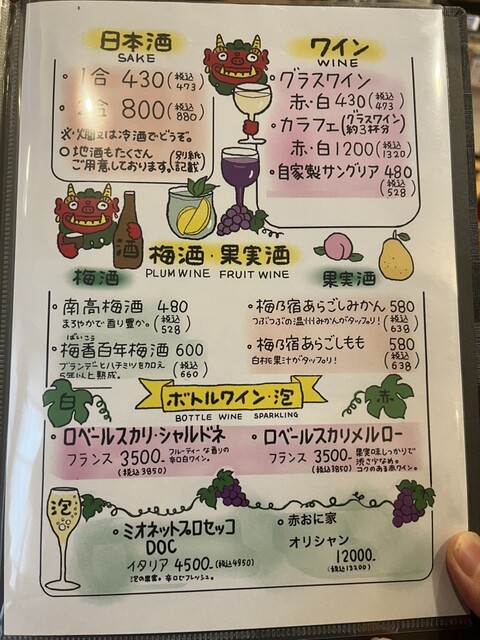 日本酒
SAKE
・1合 430(税込473)
・2合 800(税込880)
※燗又は冷酒でどうぞ。
○地酒もたくさん
ご用意しております。(別紙記載)
ワイン
WINE
・グラスワイン
赤・白 430(税込473)
・カラフェ(グラスワイン約3杯分)
赤・白 1200(税込1320)
・自家製サングリア 480
(税込528)
酒
梅酒・果実酒
PLUM WINE FRUIT WINE
梅酒
・南高梅酒 480
まろやかで香り豊か。(税込528)
ばいこう
・梅香百年梅酒 600
ブランデーとハチミツを加え
5年以上熟成。(税込660)
果実酒
・梅乃宿あらごしみかん 580
つぶつぶの温州みかんがタップリ!(税込638)
・梅乃宿あらごしもも 580
白桃果汁がタップリ!(税込638)
ボトルワイン・泡
BOTTLE WINE SPARKLING
白
・ロベールスカリ・シャルドネ
フランス 3500-
(税込3850)
フルーティーな香りの
辛口白ワイン。
赤
・ロベールスカリメルロー
フランス 3500-
(税込3850)
果実味しっかりで
渋さ少なめ。
コクのある赤ワイン。
泡
・ミオネットプロセッコ
DOC
イタリア 4500-(税込4950)
泡の果実。辛口でフレッシュ。
・赤おに家
オリシャン
12000-
(税込13200)